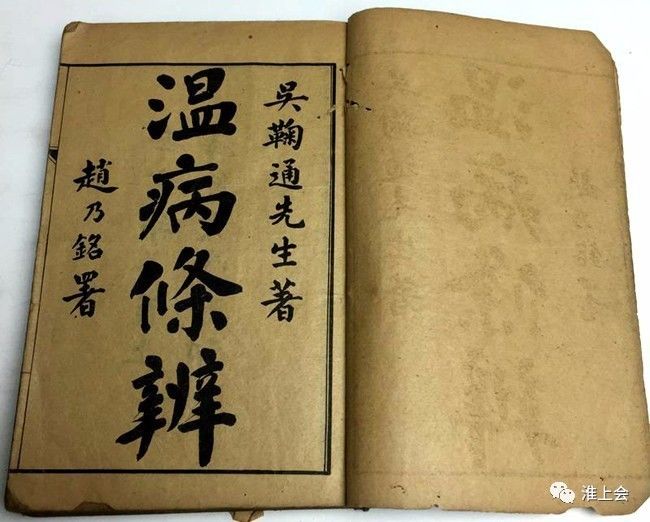 吳鞠通先生著
温病條辨
趙乃銘署
淮上会